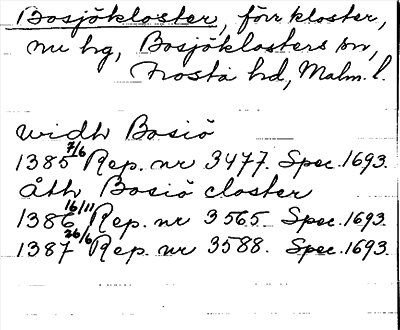 Bosjökloster, förr kloster,
nu hg, Bosjöklosters sn,
Frosta hd, Malm. l.
widh Bosiö
1385 7/6 Rep. nr 3477. Spec. 1693.
åth Bosiö closter
1386 16/11 Rep. nr 3565. Spec. 1693.
1387 26/6 Rep. nr 3588. Spec. 1693.